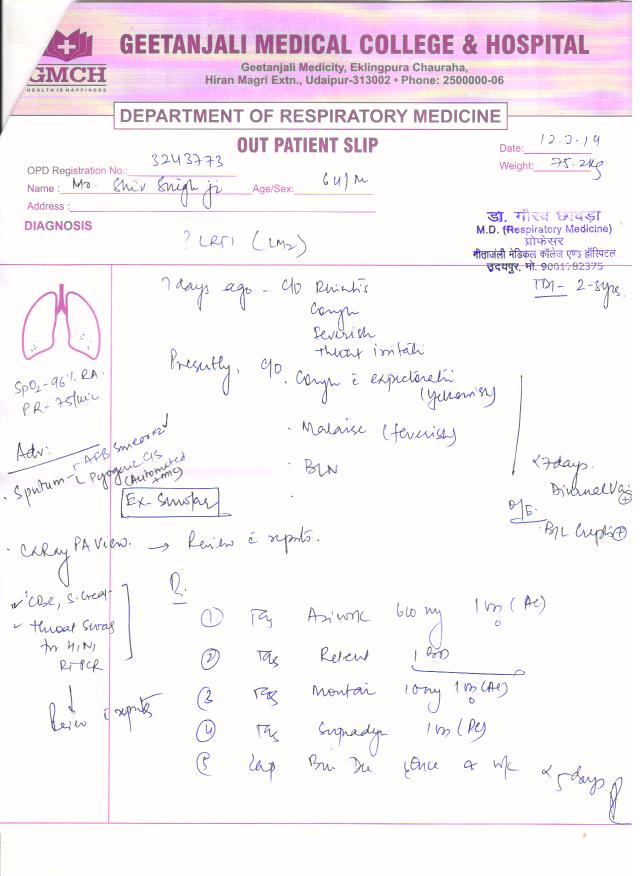 GMCH
HEALTH IS HAPPINESS
GEETANJALI MEDICAL COLLEGE & HOSPITAL
Geetanjali Medicity, Eklingpura Chauraha,
Hiran Magri Extn., Udaipur-313002 • Phone: 2500000-06
DEPARTMENT OF RESPIRATORY MEDICINE
OUT PATIENT SLIP
Date:
Weight: 75.2kg
OPD Registration No.: 3243773
Name : Mr. Shiv Singh ji Age/Sex: 64/M
Address :
DIAGNOSIS
? LRTI
डा. गौरव छाबड़ा
M.D. (Respiratory Medicine)
प्रोफेसर
गीतांजली मेडिकल कॉलेज एण्ड हॉस्पिटल
उदयपुर, मो. 9001782375
2-3yrs.
7 days ago - c/o Rhinitis
Cough
feverish
Throat irritati
Presently, c/o
. Cough c expectorati
(yellowish)
. Malaise (feverish)
SpO2-96% RA
PR-75/min
Adv:
. Sputum - AFB Smear x2
Pyogenic C/S
(Automated
+ MIC)
Ex-Smoker
<7days.
O/E.
. B/L Crepts +
. CXRay PA View. → Review c reports.
CBC, S.Creat
Throat Swab
for H1N1
RTPCR
Review c reports
R.
① Tab 600 mg 1 OD (AC)
② Tab 1 BD
③ Tab Montair 10mg 1 OD (AC)
④ Tab Supradyn 1 OD (PC)
⑤ Cap once a wk
x 5 days